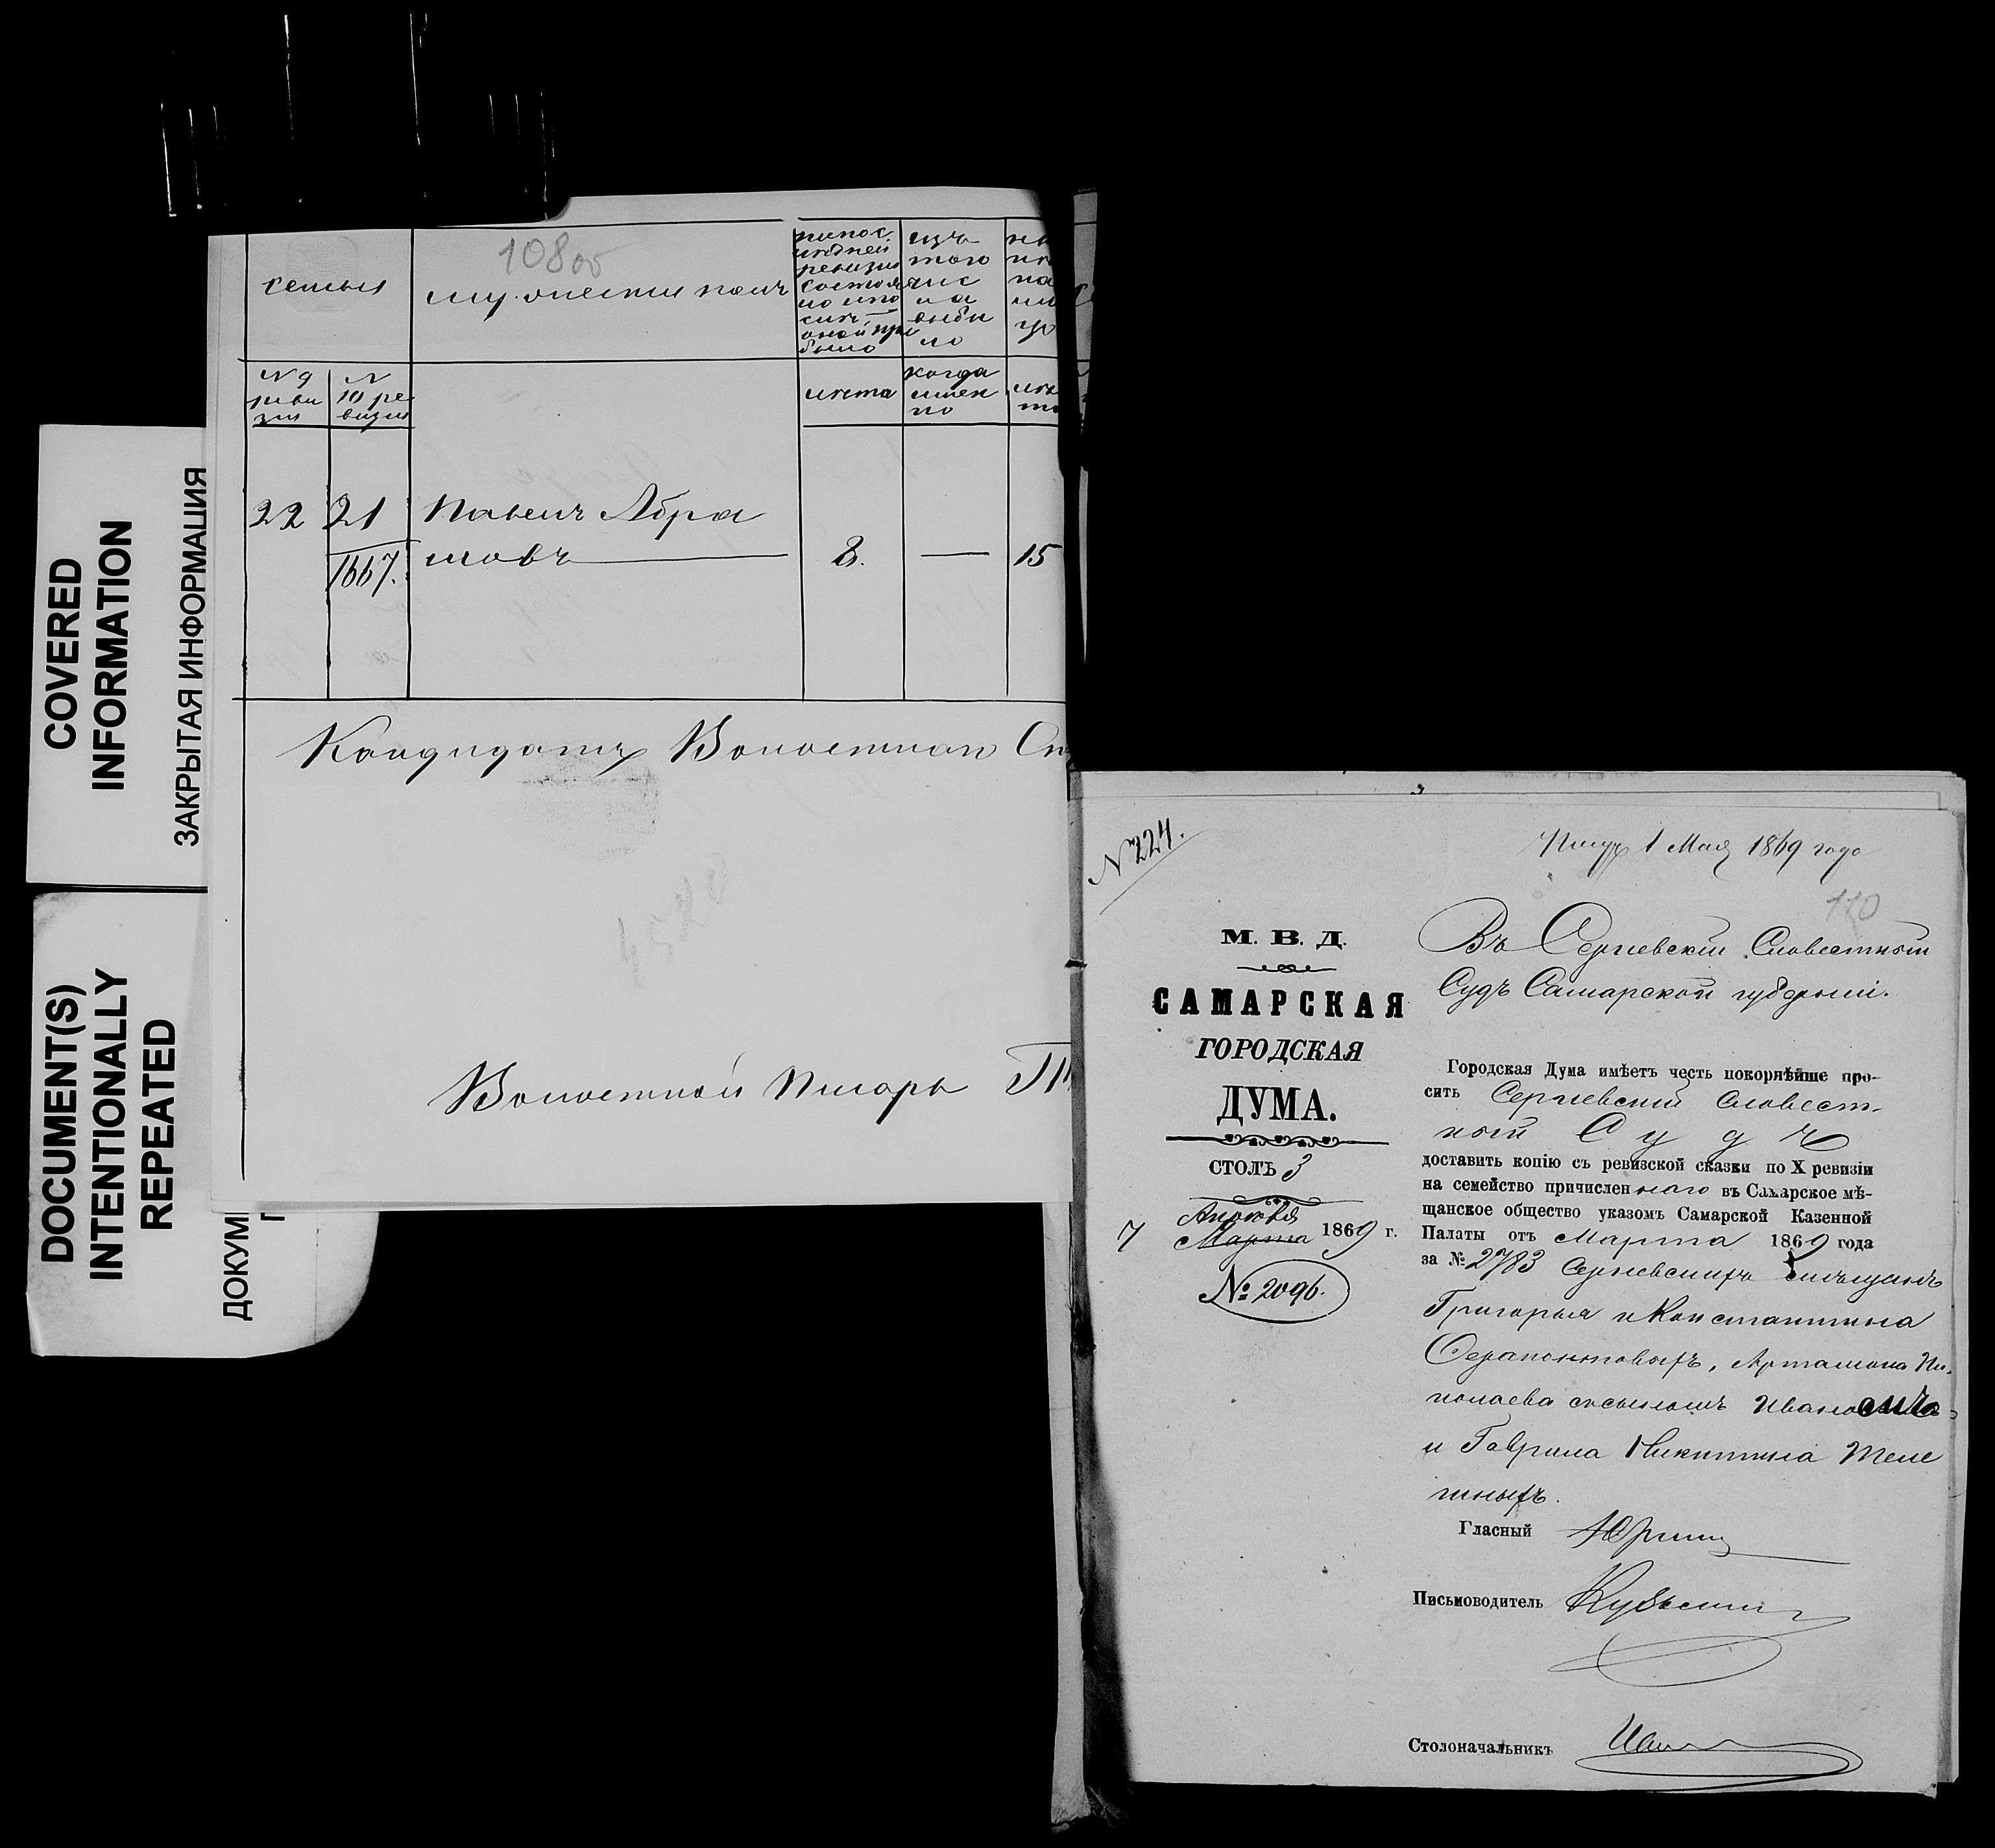 COVERED
INFORMATION
ЗАКРЫТАЯ ИНФОРМАЦИЯ
DOCUMENT(S)
INTENTIONALLY
REPEATED
ДОКУМ
108 об
семьи
мужескій полъ
по пос
лѣдней
ревизіи
состоя
ло и по
слѣ
оной при
было
изъ
того
чис
ла
выбы
ло
№ 9
реви
зіи
№
10 ре
визіи
лѣта
когда
имен
но
22 21 Павелъ Абра
1667. мовъ 8. — 15
Кандидатъ Волостнаго
Волостной Писарь
№ 224.
1 Мая 1869 года
110
М. В. Д.
САМАРСКАЯ
ГОРОДСКАЯ
ДУМА.
СТОЛЪ 3
Апрѣля
7 Марта 1869 г.
№ 2096.
Въ Сергіевскій Словестный
Судъ Самарской губерніи.
Городская Дума имѣетъ честь покорнѣйше про-
сить Сергіевскій Словест-
ный Судъ
доставить копію съ ревизской сказки по X ревизіи
на семейство причисленнаго въ Самарское мѣ-
щанское общество указомъ Самарской Казенной
Палаты отъ Марта 1869 года
за № 2783 Сергіевскихъ мѣщанъ
Григорья и Константина
Ферапонтовыхъ, Артамона Ни-
колаева съ сыномъ Иваномъ
и Гаврила Никитина Теле
гиныхъ.
Гласный Юринъ
Письмоводитель
Столоначальникъ